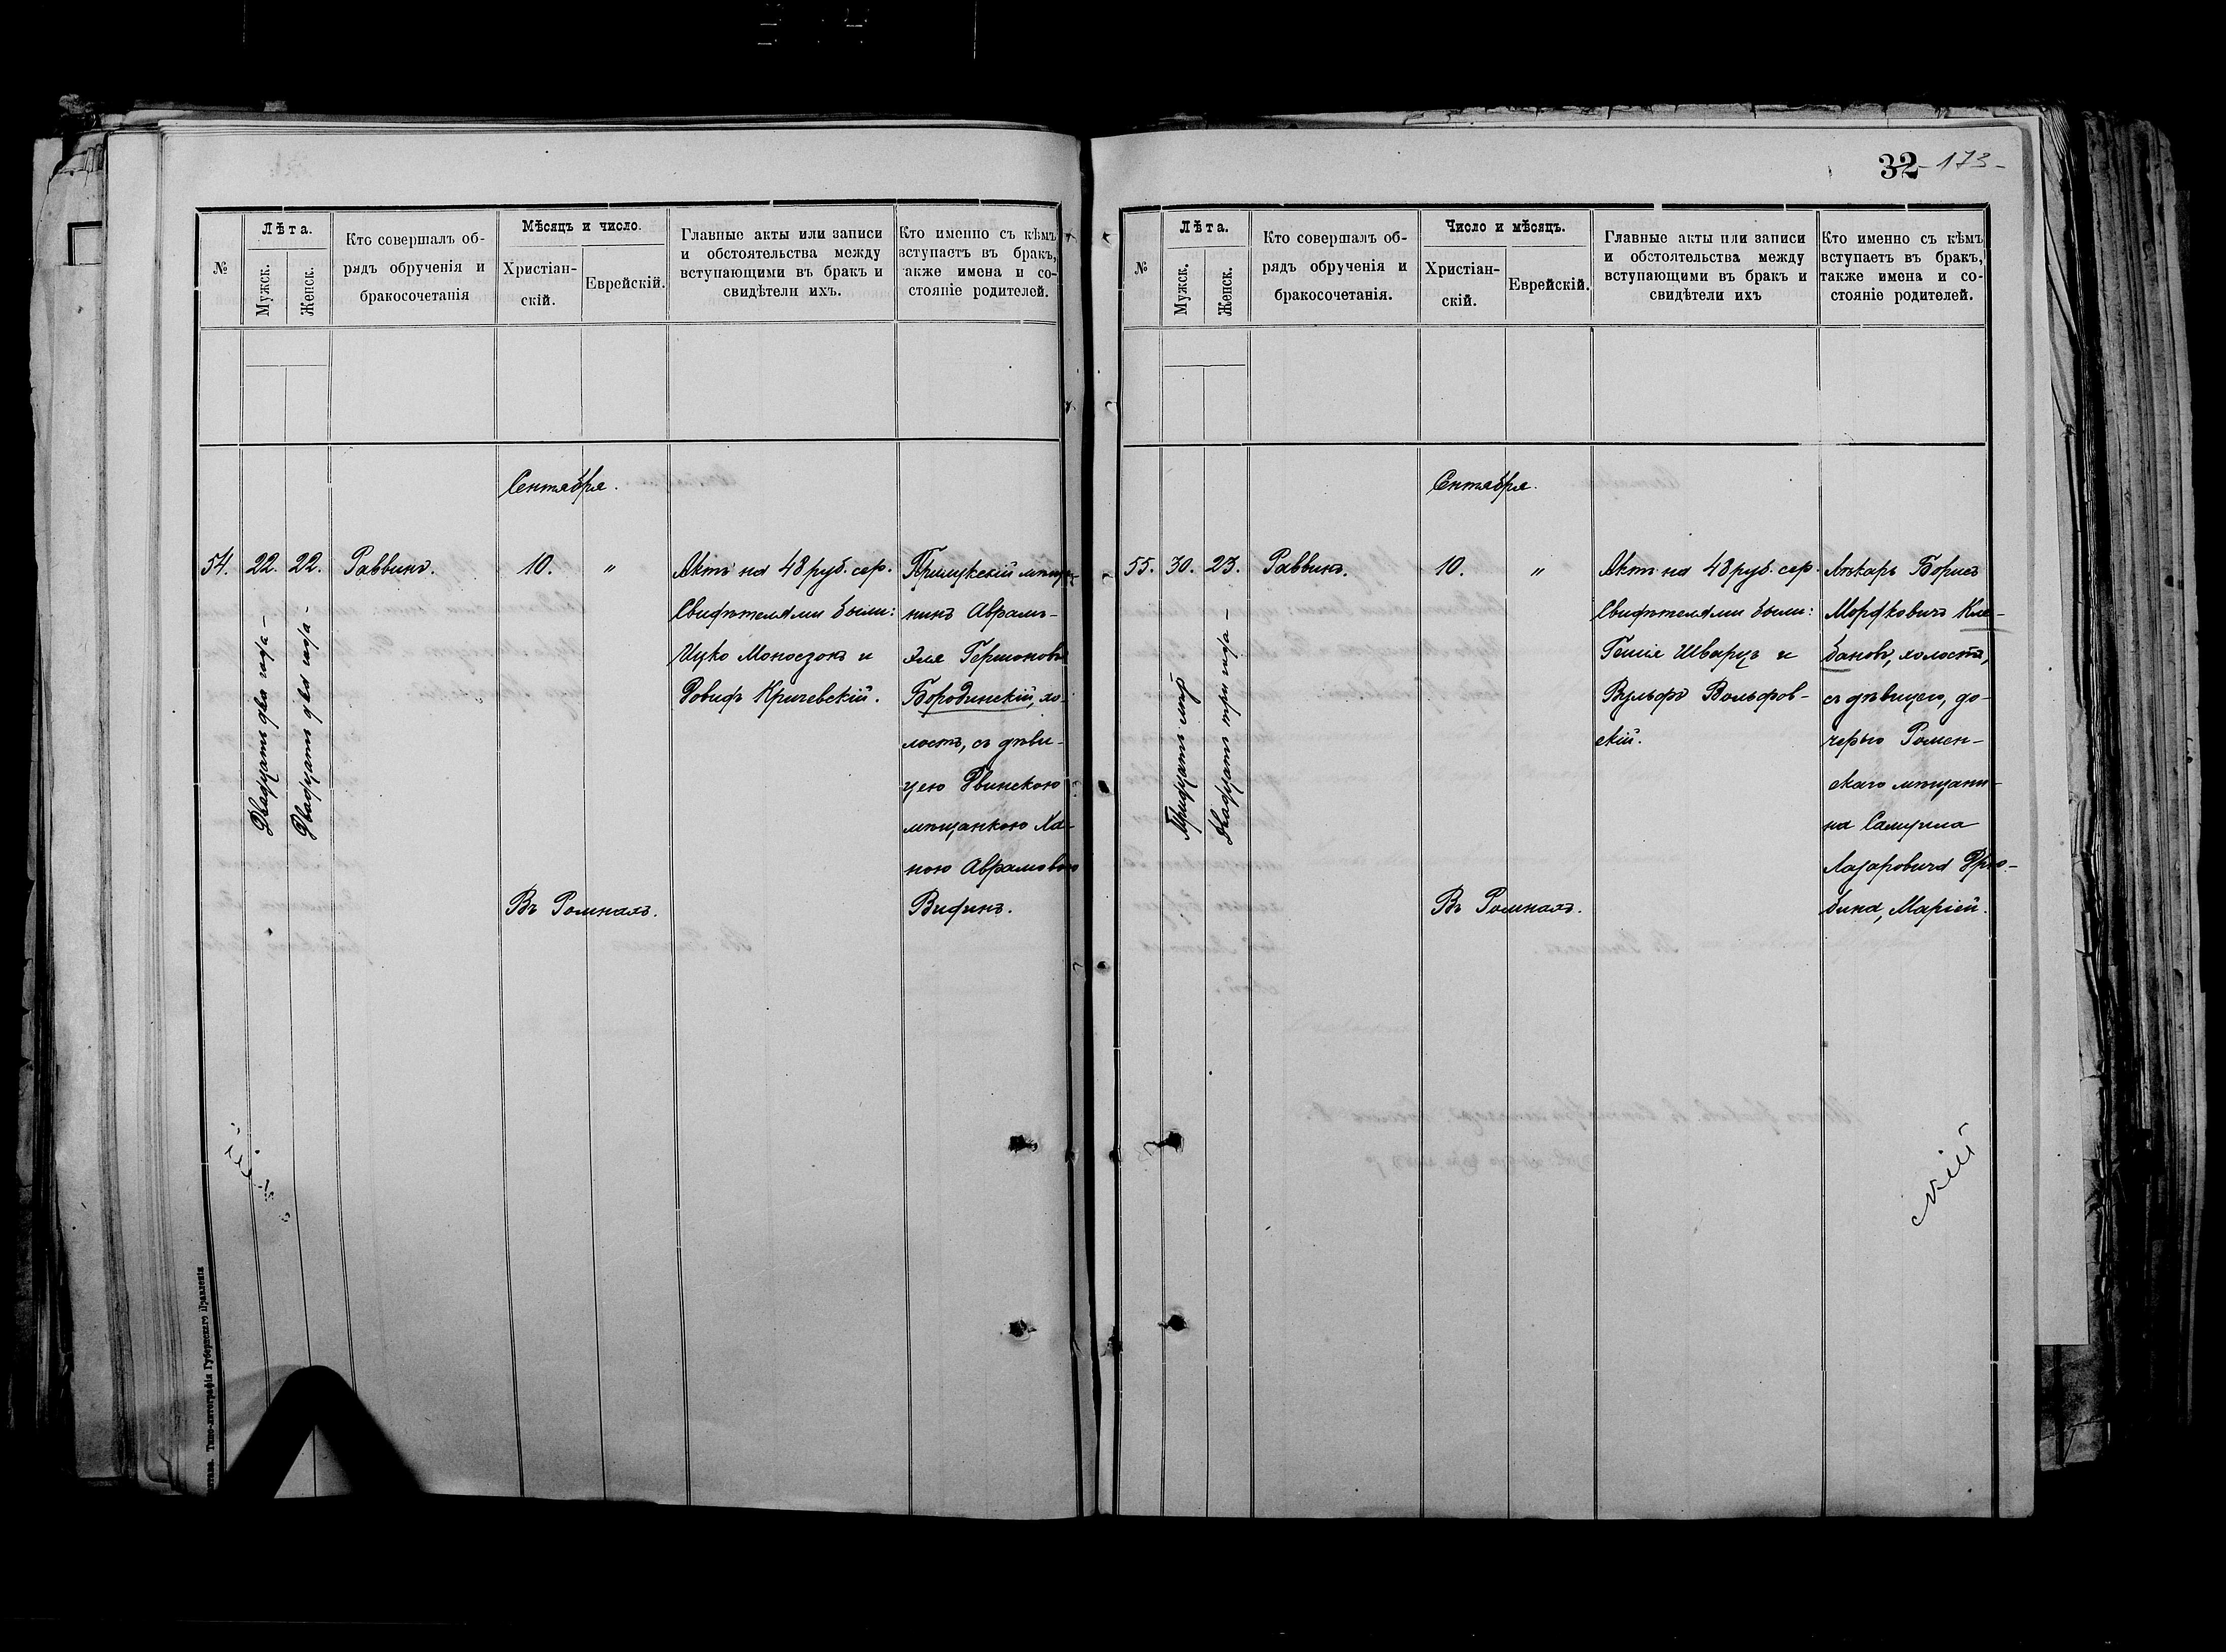 32 - 173 -
№
Лѣта.
Мужск.
Женск.
Кто совершалъ об-
рядъ обрученія и
бракосочетанія
Мѣсяцъ и число.
Христіан-
скій.
Еврейскій.
Главные акты или записи
и обстоятельства между
вступающими въ бракъ и
свидѣтели ихъ.
Кто именно съ кѣмъ
вступаетъ въ бракъ,
также имена и со-
стояніе родителей.
Сентября.
54.
22.
22.
Двадцать два года -
Двадцать два года -
Раввинъ.
10.
"
Актъ на 48 руб. сер.
Свидѣтелями были:
Ицко Моносзонъ и
Довидъ Кричевскій.
Прилукскій мѣща-
нинъ Абрамъ-
Эля Гершоновъ
Бородинскій, хо-
лостъ, съ дѣви-
цею Двинскою
мѣщанкою Ха-
ною Абрамовою
Видинъ.
Въ Ромнахъ.
Типо-литографія Губернскаго Правленія
№
Лѣта.
Мужск.
Женск.
Кто совершалъ об-
рядъ обрученія и
бракосочетанія.
Число и мѣсяцъ.
Христіан-
скій.
Еврейскій.
Главные акты или записи
и обстоятельства между
вступающими въ бракъ и
свидѣтели ихъ
Кто именно съ кѣмъ
вступаетъ въ бракъ,
также имена и со-
стояніе родителей.
Сентября.
55.
30.
23.
Тридцать лѣтъ
Двадцать три года -
Раввинъ.
10.
"
Актъ на 48 руб. сер.
Свидѣтелями были:
Гешіе Шварцъ и
Вульфъ Вольфов-
скій.
Лѣкарь Борисъ
Мордковичъ Кле-
бановъ, холостъ,
съ дѣвицею, до-
черью Ромен-
скаго мѣщани-
на Самуила
Лазаровича Дрю-
бина, Маріей.
Въ Ромнахъ.